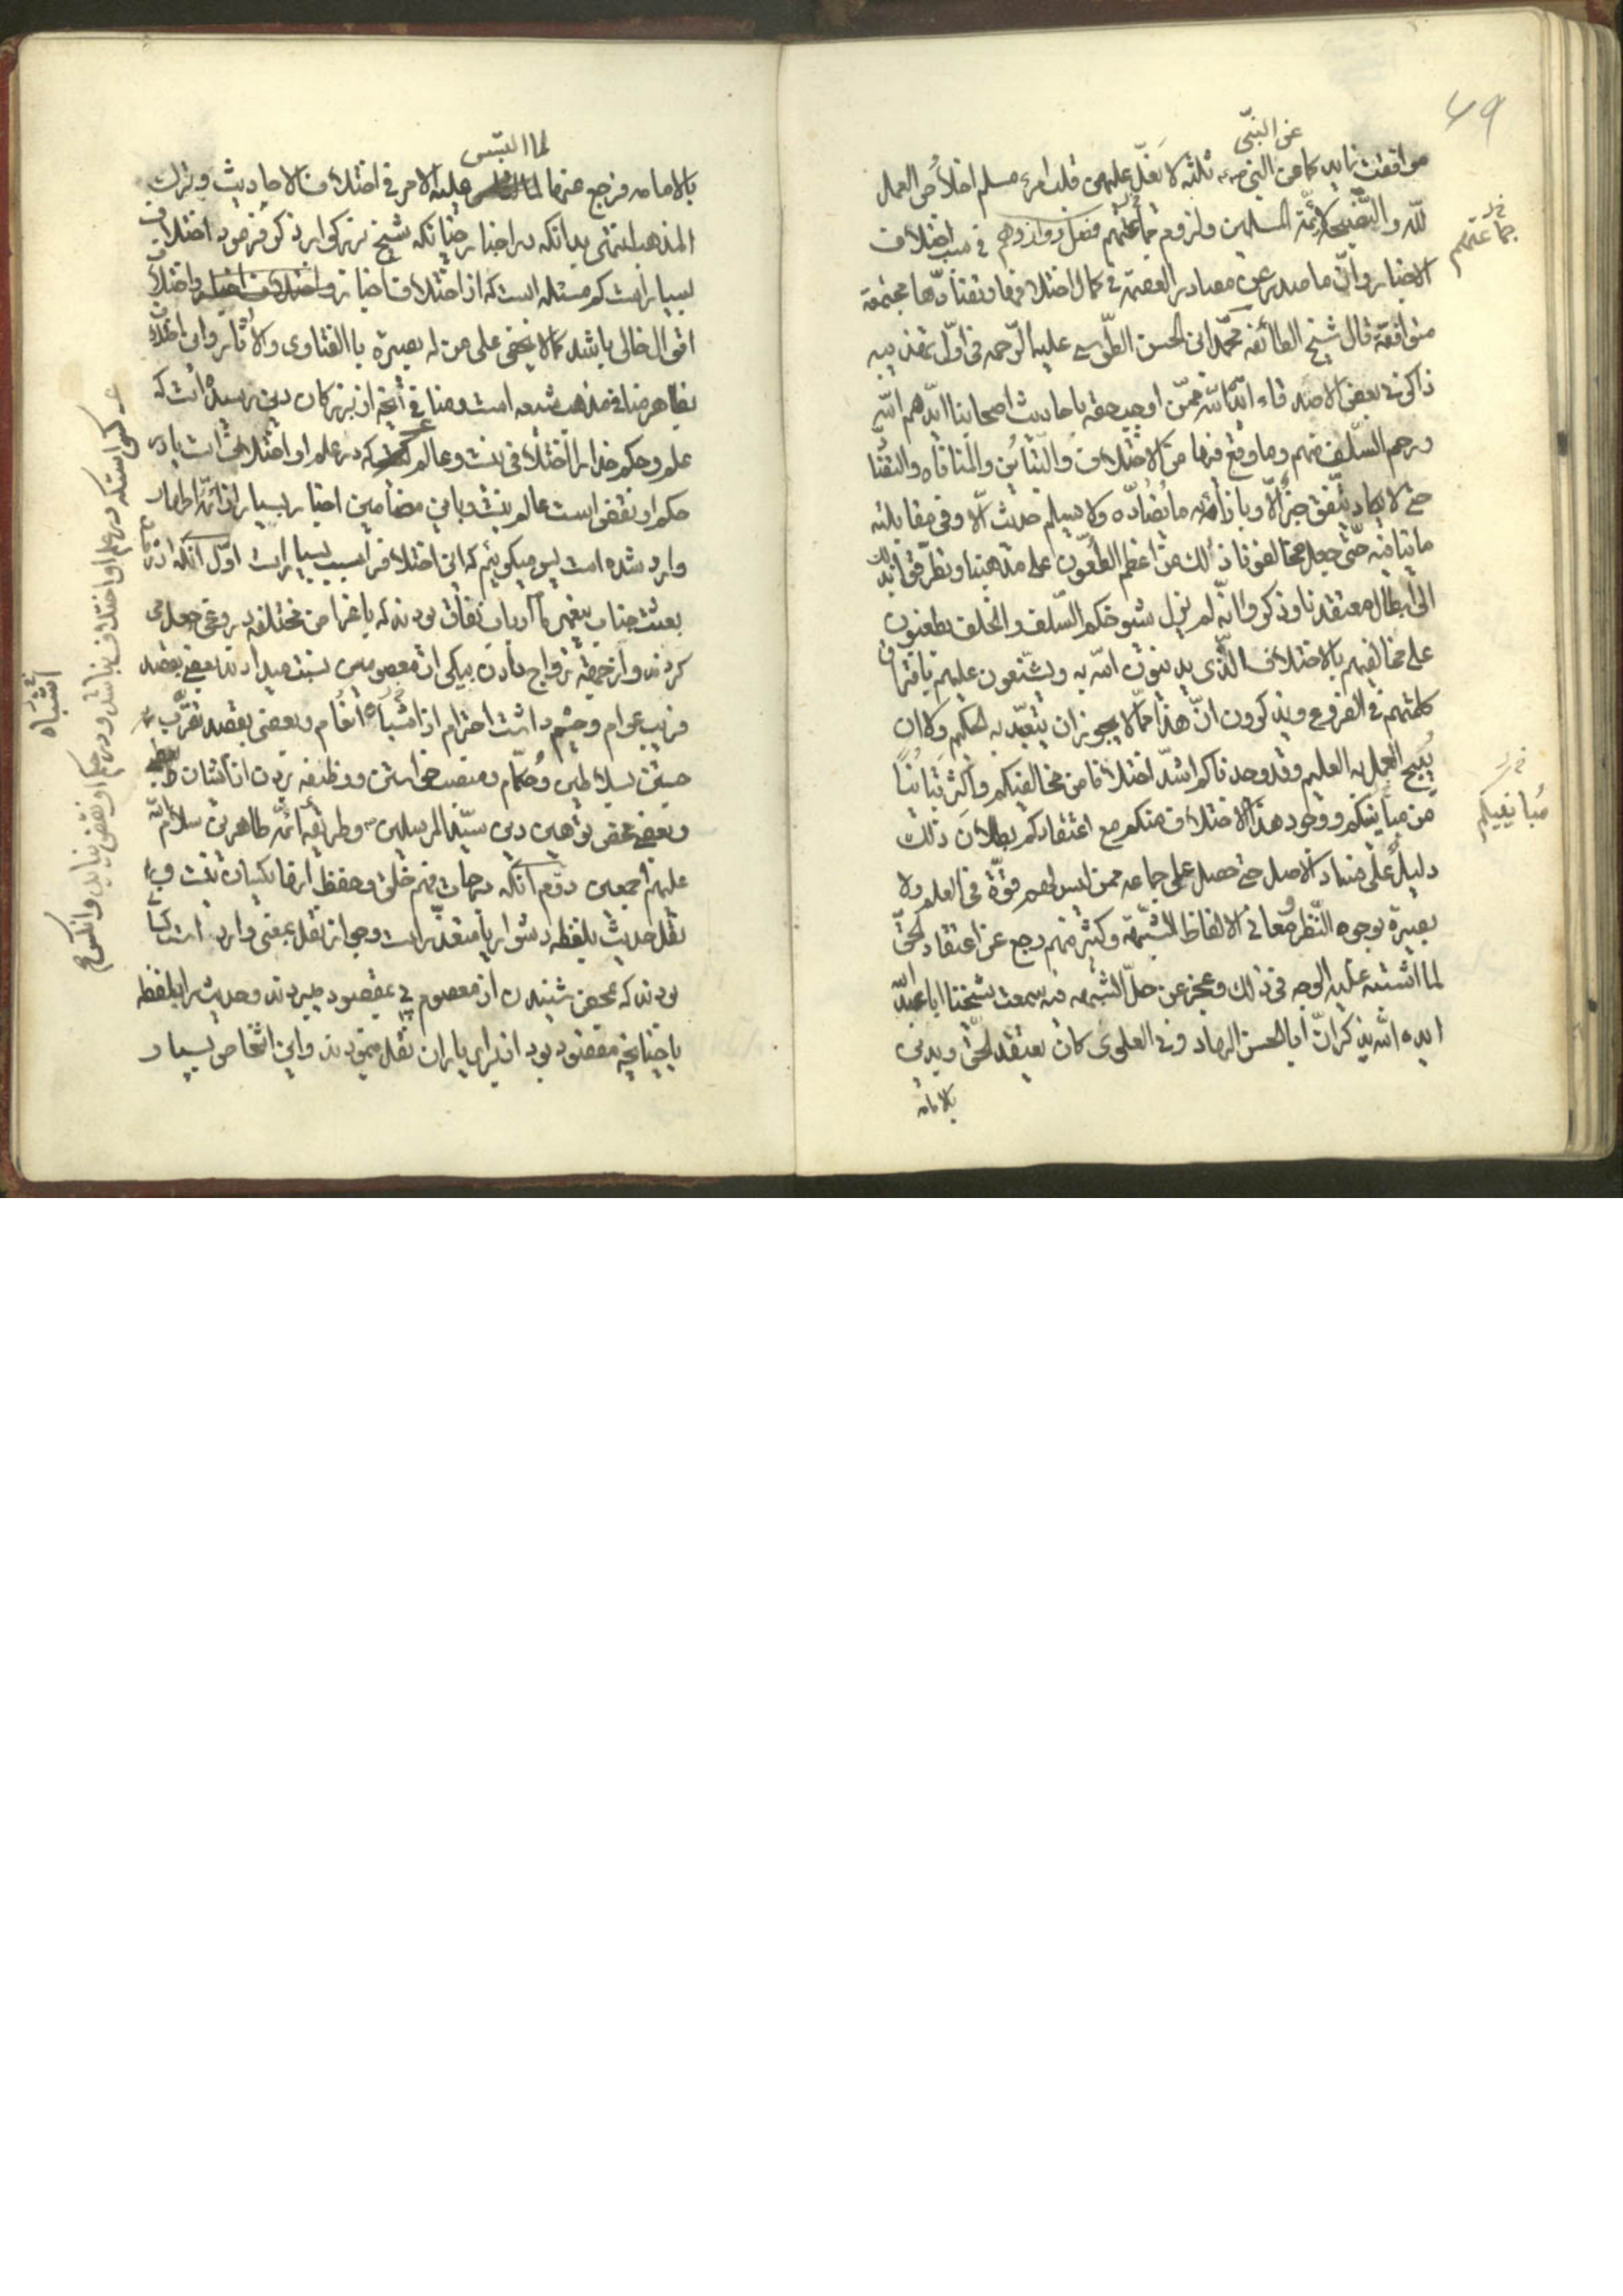 ٤٩
عن النبی
موافقت نماید کما عن النبی ص ثلثه لا یغل علیهن قلب امرء مسلم اخلاص العمل
لله والنصیحة لائمّة المسلمین ولزوم جماعتهم فصل دوازدهم در سبب اختلاف
جماعتهم
الاخبار وانّ ما صدر عن مصادر العصمة فی کمال اختلافها وتضادّها مجتمعة
متوافقة قال شیخ الطائفه محمّد ابن الحسن الطّوسی علیه الرّحمه فی اوّل تهذیبه
ذاکرنی بعض الاصدقاء ایّده اللّه ممّن اوجب حقه باحادیث اصحابنا ایّدهم اللّه
ورحم السّلف منهم وما وقع فیها من الاختلاف والتّباین والمنافاه والتضّاد
حتی لا یکاد یتّفق خبر الّا وبازائه ما یضادّه ولا یسلم حدیث الّا وفی مقابلته
ما ینافیه حتّی جعل مخالفونا ذلک من اعظم الطّعون علی مذهبنا وتطرّقوا بذلک
الی ابطال معتقدنا وذکروا انّه لم یزل شیوخکم السّلف والخلف یطعنون
علی مخالفیهم بالاختلاف الّذی یدینون اللّه به ویشنّعون علیهم بافتراق
کلمتهم فی الفروع ویذکرون انّ هذا ممّا لا یجوز ان یتعبّد به الحکیم ولا ان
یبیح العمل به العلیم وقد وجدناکم اشدّ اختلافا من مخالفیکم واکثر تباینًا
من مباینیکم ووجود هذا الاختلاف منکم مع اعتقادکم بطلان ذلک
مباینیکم
دلیلٌ علی فساد الاصل حتی حصل علی جماعه ممن لیس لهم قوّة فی العلم ولا
بصیرة بوجوه النّظر ومعانی الالفاظ الشبّهة وکثیر منهم رجع عن اعتقاد الحقّ
لما اشتبه علیه الوجه فی ذلک وعجز عن حلّ الشبهه فیه سمعت شیخنا ابا عبد اللّه
ایده اللّه یذکر انّ ابا الحسین الهارونی العلوی کان یعتقد الحقّ ویدین
بالامامه
لما التبس
بالامامه فرجع عنها علیه الامر فی اختلاف الاحادیث وترک
المذهب انتهی بدانکه در اخبار چنانکه شیخ بزرکوار ذکر فرمود اختلاف
بسیار است کم مسئله ایست که از اختلاف اخبار و اختلاف
اقوال خالی باشد کما لا یخفی علی من له بصیرة بالفتاوی والاثار واین اختلاف
بظاهر منافی مذهب شیعه است ومنافی آنچه از بزرکان دین رسیده است که
علم وحکم خدا را اختلافی نیست وعالم که در علم او اختلافیست یا در
حکم او نقض است عالم نیست وباین مضامین اخبار بسیار از ائمّه اطهار
عـ کسی است که در علم او اختلاف نباشد ودر حکم او نقض نیاید وانکس ع
وارد شده است پس میکوئیم که این اختلاف را سبب بسیار است اوّل آنکه از زمان
بعثت جناب پیغمبر ارباب نفاق بودند که باغراض مختلفه دروغی جعل می
کردند واز جهة رواج دادن بیکی از معصومین نسبت میدادند بعضی بقصد
فریب عوام وچشم داشت احترام از اشباه انعام وبعضی بقصد تقرّب
اشباه
جستن بسلاطین وحکّام ومنصب خواستن ووظیفه بردن از آنشان
وبعضی محض توهین دین سیّد المرسلین وطریقه ائمّه طاهرین سلام اللّه
علیهم اجمعین دوّم آنکه درجات فهم خلق وحفظ آنها یکسان نیست و
نقل حدیث بلفظه دشوار یا متعذّر است وجواز نقل بمعنی وارد است
بودند که بمحض شنیدن از معصوم پی بمقصود میبردند وحدیث را بلفظه
یا چنانچه مقصود بود از برای یاران نقل مینمودند واین اشخاص بسیار